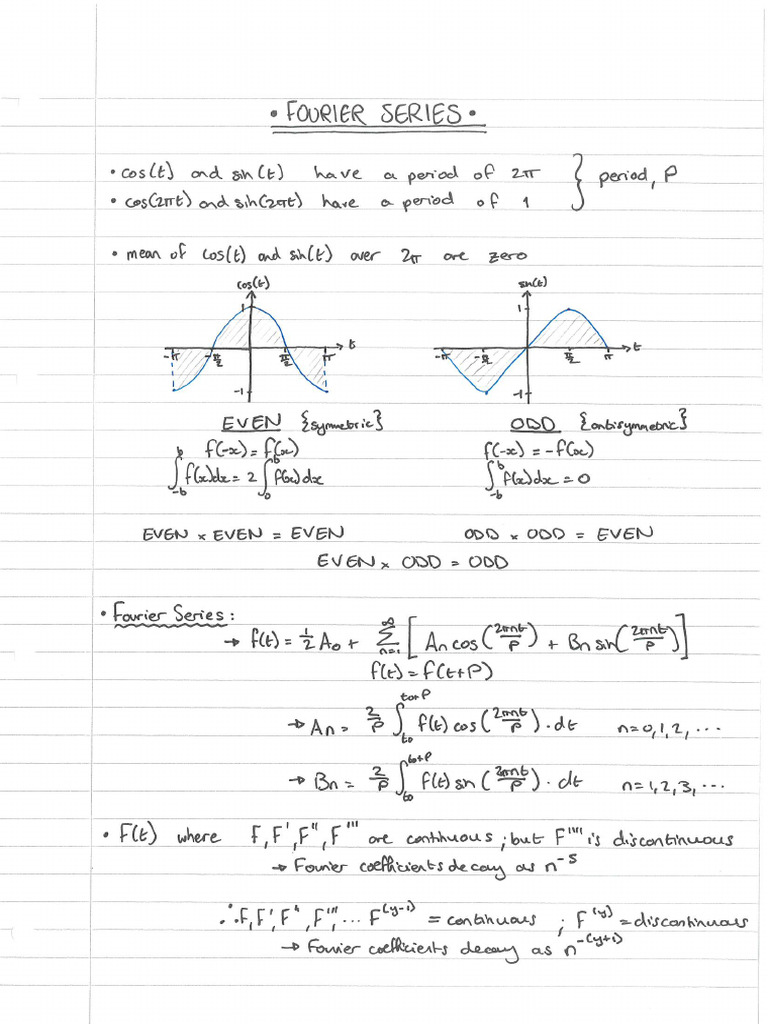 • FOURIER SERIES •
• cos(t) and sin(t) have a period of 2π } period, P
• cos(2πt) and sin(2πt) have a period of 1
• mean of cos(t) and sin(t) over 2π are zero
cos(t) sin(t)
1 1
-π -π/2 π/2 π t -π -π/2 π/2 π t
-1 -1
EVEN {symmetric} ODD {antisymmetric}
f(-x) = f(x) f(-x) = -f(x)
∫_{-b}^{b} f(x)dx = 2 ∫_{0}^{b} f(x)dx ∫_{-b}^{b} f(x)dx = 0
EVEN × EVEN = EVEN ODD × ODD = EVEN
EVEN × ODD = ODD
• Fourier Series:
→ f(t) = 1/2 A₀ + ∑_{n=1}^{∞} [An cos(2πnt/P) + Bn sin(2πnt/P)]
f(t) = f(t+P)
→ An = 2/P ∫_{to}^{to+P} f(t) cos(2πnt/P) · dt n=0,1,2,...
→ Bn = 2/P ∫_{to}^{to+P} f(t) sin(2πnt/P) · dt n=1,2,3,...
• F(t) where F, F', F'', F''' are continuous; but F'''' is discontinuous
→ Fourier coefficients decay as n^{-5}
∴ F, F', F'', F''', ... F^{(y-1)} = continuous ; F^{(y)} = discontinuous
→ Fourier coefficients decay as n^{-(y+1)}